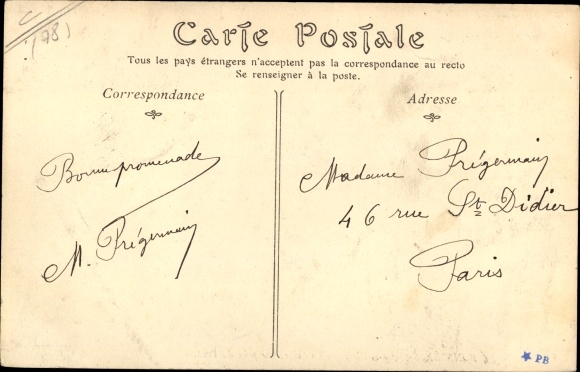 (78)
Carte Postale
Tous les pays étrangers n'acceptent pas la correspondance au recto
Se renseigner à la poste.
Correspondance
Bonne promenade
M. Prégermain
Adresse
Madame Prégermain
46 rue St Didier
Paris
PB